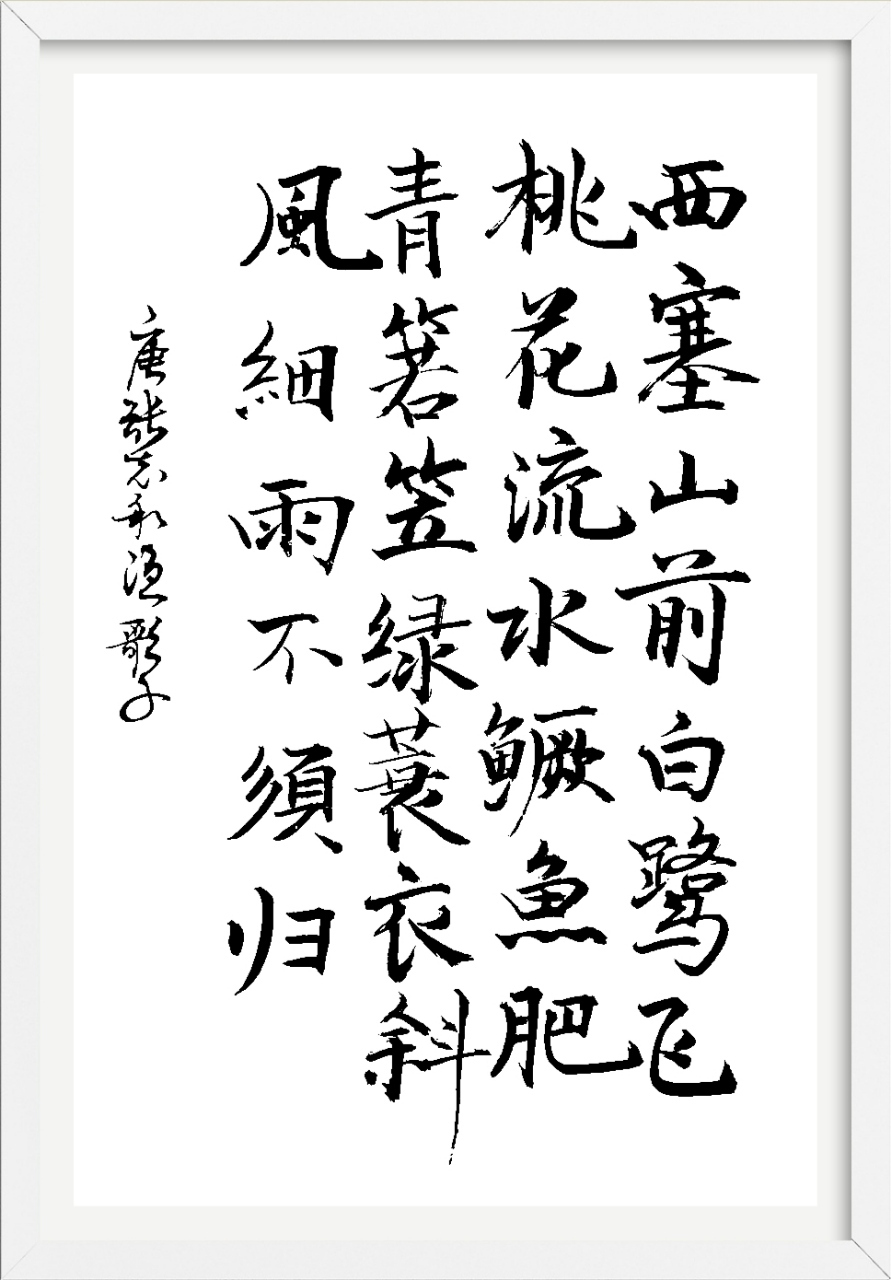 西塞山前白鹭飞
桃花流水鳜魚肥
青箬笠绿蓑衣斜
風細雨不須归
唐張志和渔歌子